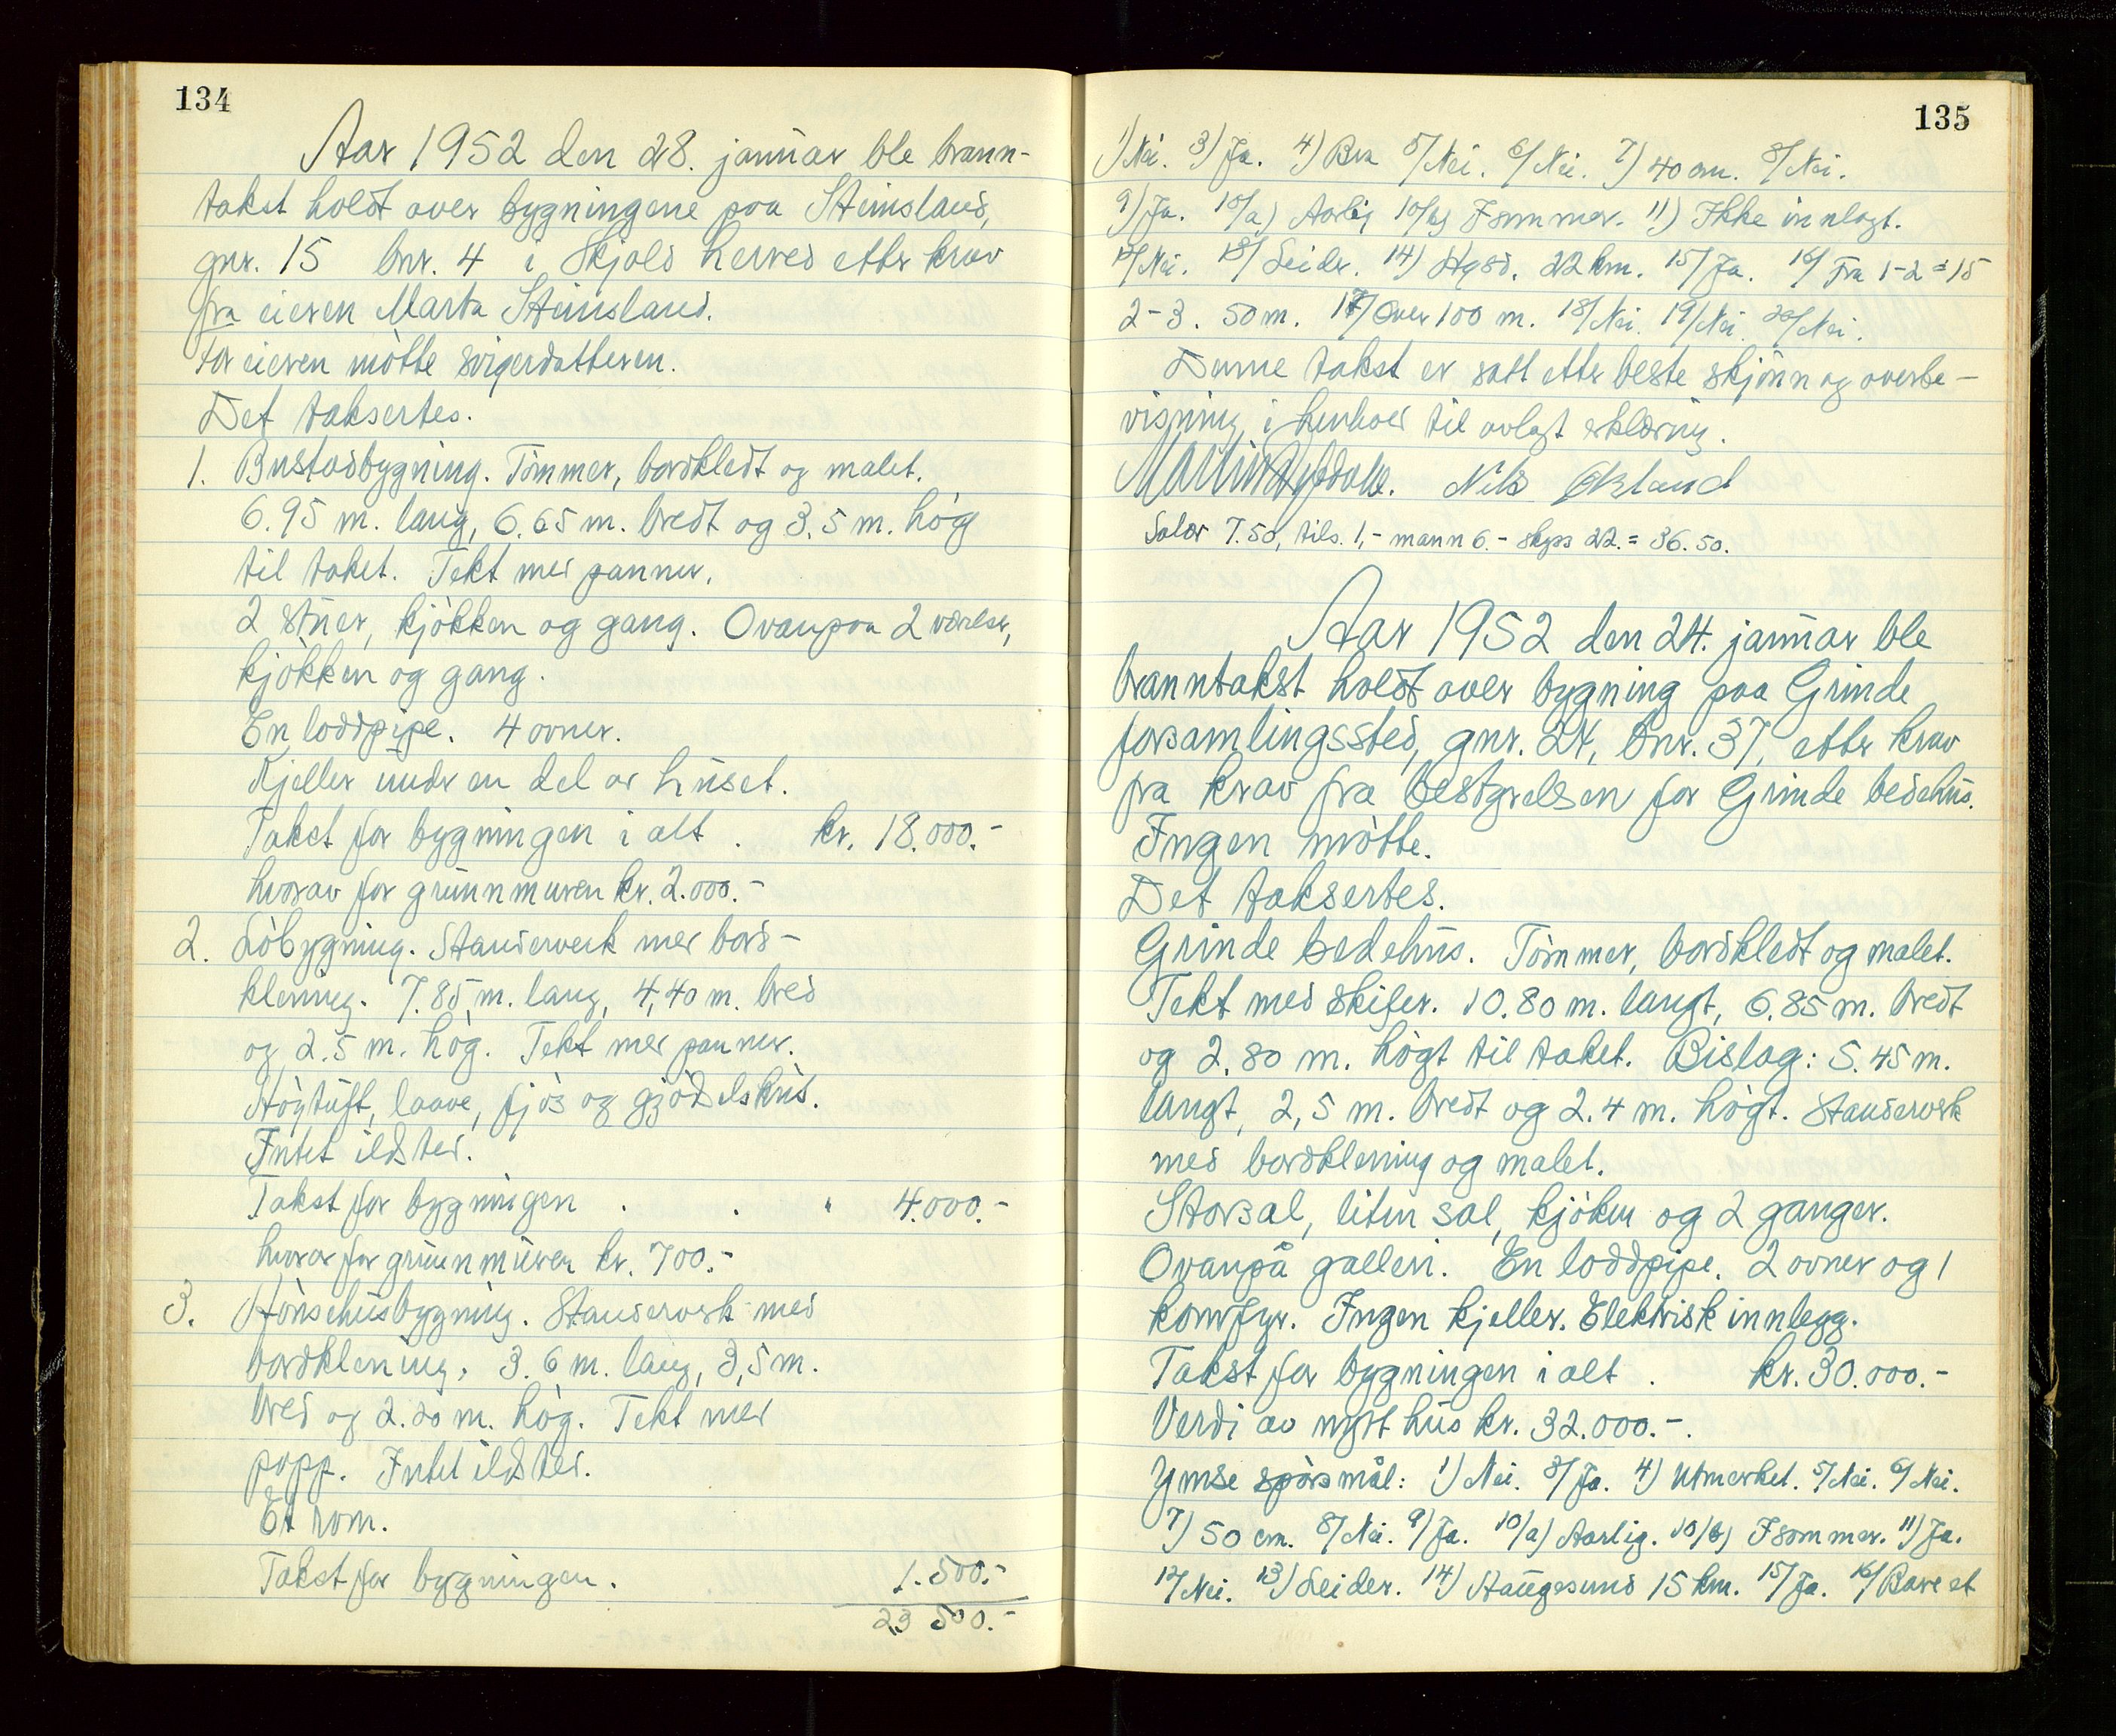 134
Aar 1952 den 28. januar ble brann-
takst holdt over bygningene paa Steinsland,
gnr. 15 bnr. 4 i Skjold herred etter krav
fra eieren Marta Steinsland.
For eieren mòtte svigerdatteren.
Det taksertes.
1. Bustadbygning. Tòmmer, bordkledt og malet.
6.95 m. lang, 6.65 m. bredt og 3.5 m. hòg
til taket. Tekt med panner.
2 stuer, kjòkken og gang. Ovanpaa 2 værelser,
kjòkken og gang.
En loddpipe. 4 ovner.
Kjeller under en del av huset.
Takst for bygningen i alt . kr. 18.000.-
hvorav for grunnmuren kr. 2.000.-
2. Lòbygning. Stenderverk med bord-
kledning. 7.85 m. lang, 4,40 m. bred
og 2.5 m. hòg. Tekt med panner.
Hòytuft, laave, fjòs og gjòdselshùs.
Intet ildsted.
Takst for bygningen . . " 4.000.-
hvorav for grunnmuren kr. 700.-
3. Hònsehusbygning. Stenderverk med
bordkledning. 3.6 m. lang, 3,5 m.
bred og 2.20 m. hòg. Tekt med
papp. Intet ildsted.
Et rom.
Takst for bygningen. 1.500.-
23 500.-
135
1) Nei. 3) Ja. 4) Bra 5/ Nei. 6/ Nei. 7) 40 cm. 8/ Nei.
9) Ja. 10/a) Aarlig 10/b) I sommer. 11) Ikke innlagt.
12/ Nei. 13/ Leider. 14) Hgsd. 22 km. 15/ Ja. 16/ Fra 1-2 = 15
2-3. 50 m. 17/ Over 100 m. 18/ Nei. 19/ Nei 20/ Nei.
Denne takst er satt etter beste skjònn og overbe-
visning i henhold til avlagt erklæring.
Nils Økland
Salær 7.50, tils. 1,- mann 6.- skyss 22. = 36.50.
Aar 1952 den 24. januar ble
branntakst holdt over bygning paa Grinde
forsamlingssted, gnr. 24, bnr. 37, etter krav
fra krav fra bestyrelsen for Grinde bedehus.
Ingen mòtte.
Det taksertes.
Grinde bedehus. Tòmmer, bordkledt og malet.
Tekt med skifer. 10.80 m. langt, 6.85 m. bredt
og 2.80 m. hògt til taket. Bislag: 5.45 m.
langt, 2,5 m. bredt og 2.4 m. hògt. Stenderverk
med bordkledning og malet.
Storsal, liten sal, kjòken og 2 ganger.
Ovanpå galleri. En loddpipe. 2 ovner og 1
komfyr. Ingen kjeller. Elektrisk innlegg.
Takst for bygningen i alt . kr. 30.000.-
Verdi av nytt hus kr. 32.000.-.
Ymse spòrsmål: 1) Nei. 3/ Ja. 4) Utmerket. 5/ Nei. 6/ Nei.
7) 50 cm. 8/ Nei. 9/ Ja. 10/a) Aarlig. 10/b) I sommer. 11) Ja.
12/ Nei. 13) Leider. 14) Haugesund 15 km. 15/ Ja. 16/ Bare et